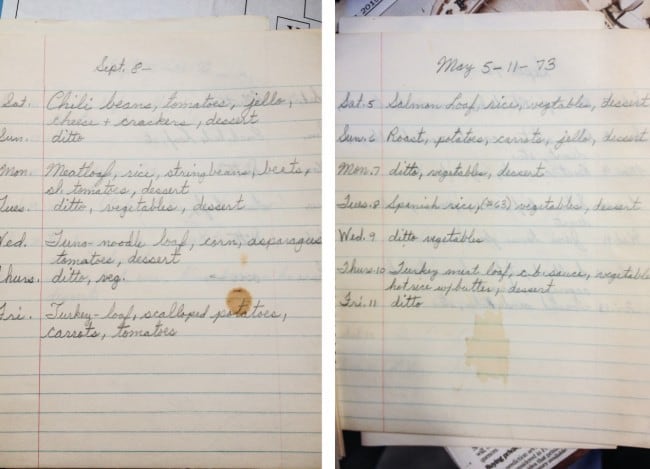 Sept. 8-
Sat. Chili beans, tomatoes, jello,
cheese + crackers, dessert
Sun. ditto
Mon. Meatloaf, rice, stringbeans, beets,
sl. tomatoes, dessert
Tues. ditto, vegetables, dessert
Wed. Tuna-noodle loaf, corn, asparagus
tomatoes, dessert
Thurs. ditto, veg.
Fri. Turkey-loaf, scalloped potatoes,
carrots, tomatoes
May 5-11-73
Sat. 5 Salmon Loaf, rice, vegtables, dessert
Sun. 6 Roast, potatoes, carrots, jello, dessert
Mon. 7 ditto, vegetables, dessert
Tues. 8 Spanish rice, (#63) vegetables, dessert
Wed. 9 ditto vegetables
Thurs. 10 Turkey meat loaf, c.b. sauce, vegetables
hot rice w/ butter, dessert
Fri. 11 ditto